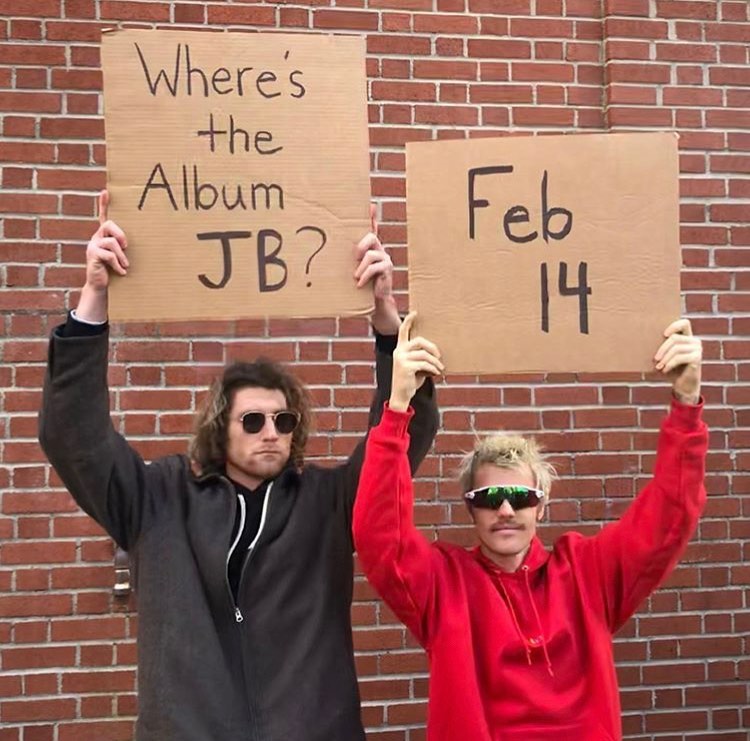 Where's
the
Album
JB?
Feb
14